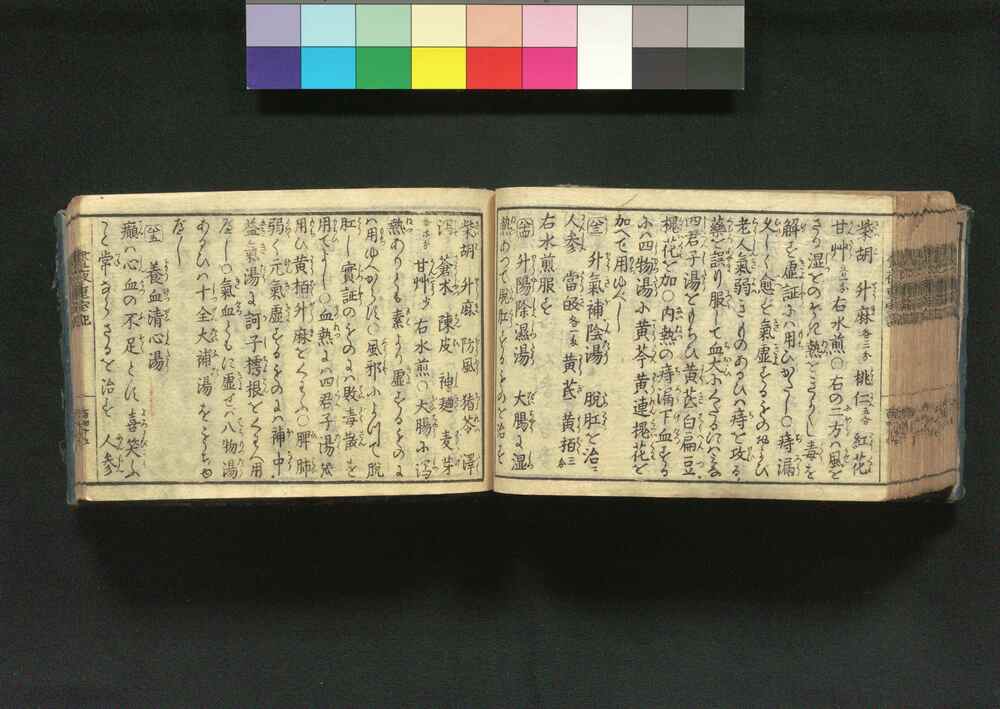 柴胡 升麻 各三分 桃仁 五分 紅花
甘艸 五分 右水煎〇右の二方ハ風を
さり湿をのぞき熱をさまし毒を
解す虚証にハ用ひがたし〇痔漏
久しく愈ず氣虚するもの
老人氣弱きものあるひハ痔を攻る
藥を誤り服して血大にくだるにハ
四君子湯をもちひ黄芪白扁豆
槐花を加〇内熱の痔漏下血する
にハ四物湯に黄芩黄連槐花を
加へて用ゆべし
升氣補陰湯 脱肛を治ス
人参 當皈 黄芪 黄栢
右水煎服ス
升陽除濕湯 大腸に湿
熱あつて脱肛するものを治ス
柴胡 升麻 防風 猪苓 澤
瀉 蒼朮 陳皮 神麯 麦芽
甘艸 少 右水煎〇大腸に湿
熱ありとも素より虚するものに
ハ用ゆべからず〇風邪によつて脱
肛し實証のものにハ敗毒散を
用てよし〇血熱にハ四君子湯
用ひ黄栢升麻をくハふ〇脾肺
弱く元氣虚するものにハ補中
益氣湯に訶子樗根をくハへ用
べし〇氣血ともに虚せバ八物湯
あるひハ十全大補湯をもちゆ
べし
養血清心湯
癲ハ心血の不足とす喜笑ふ
こと常ならざるを治ス 人参